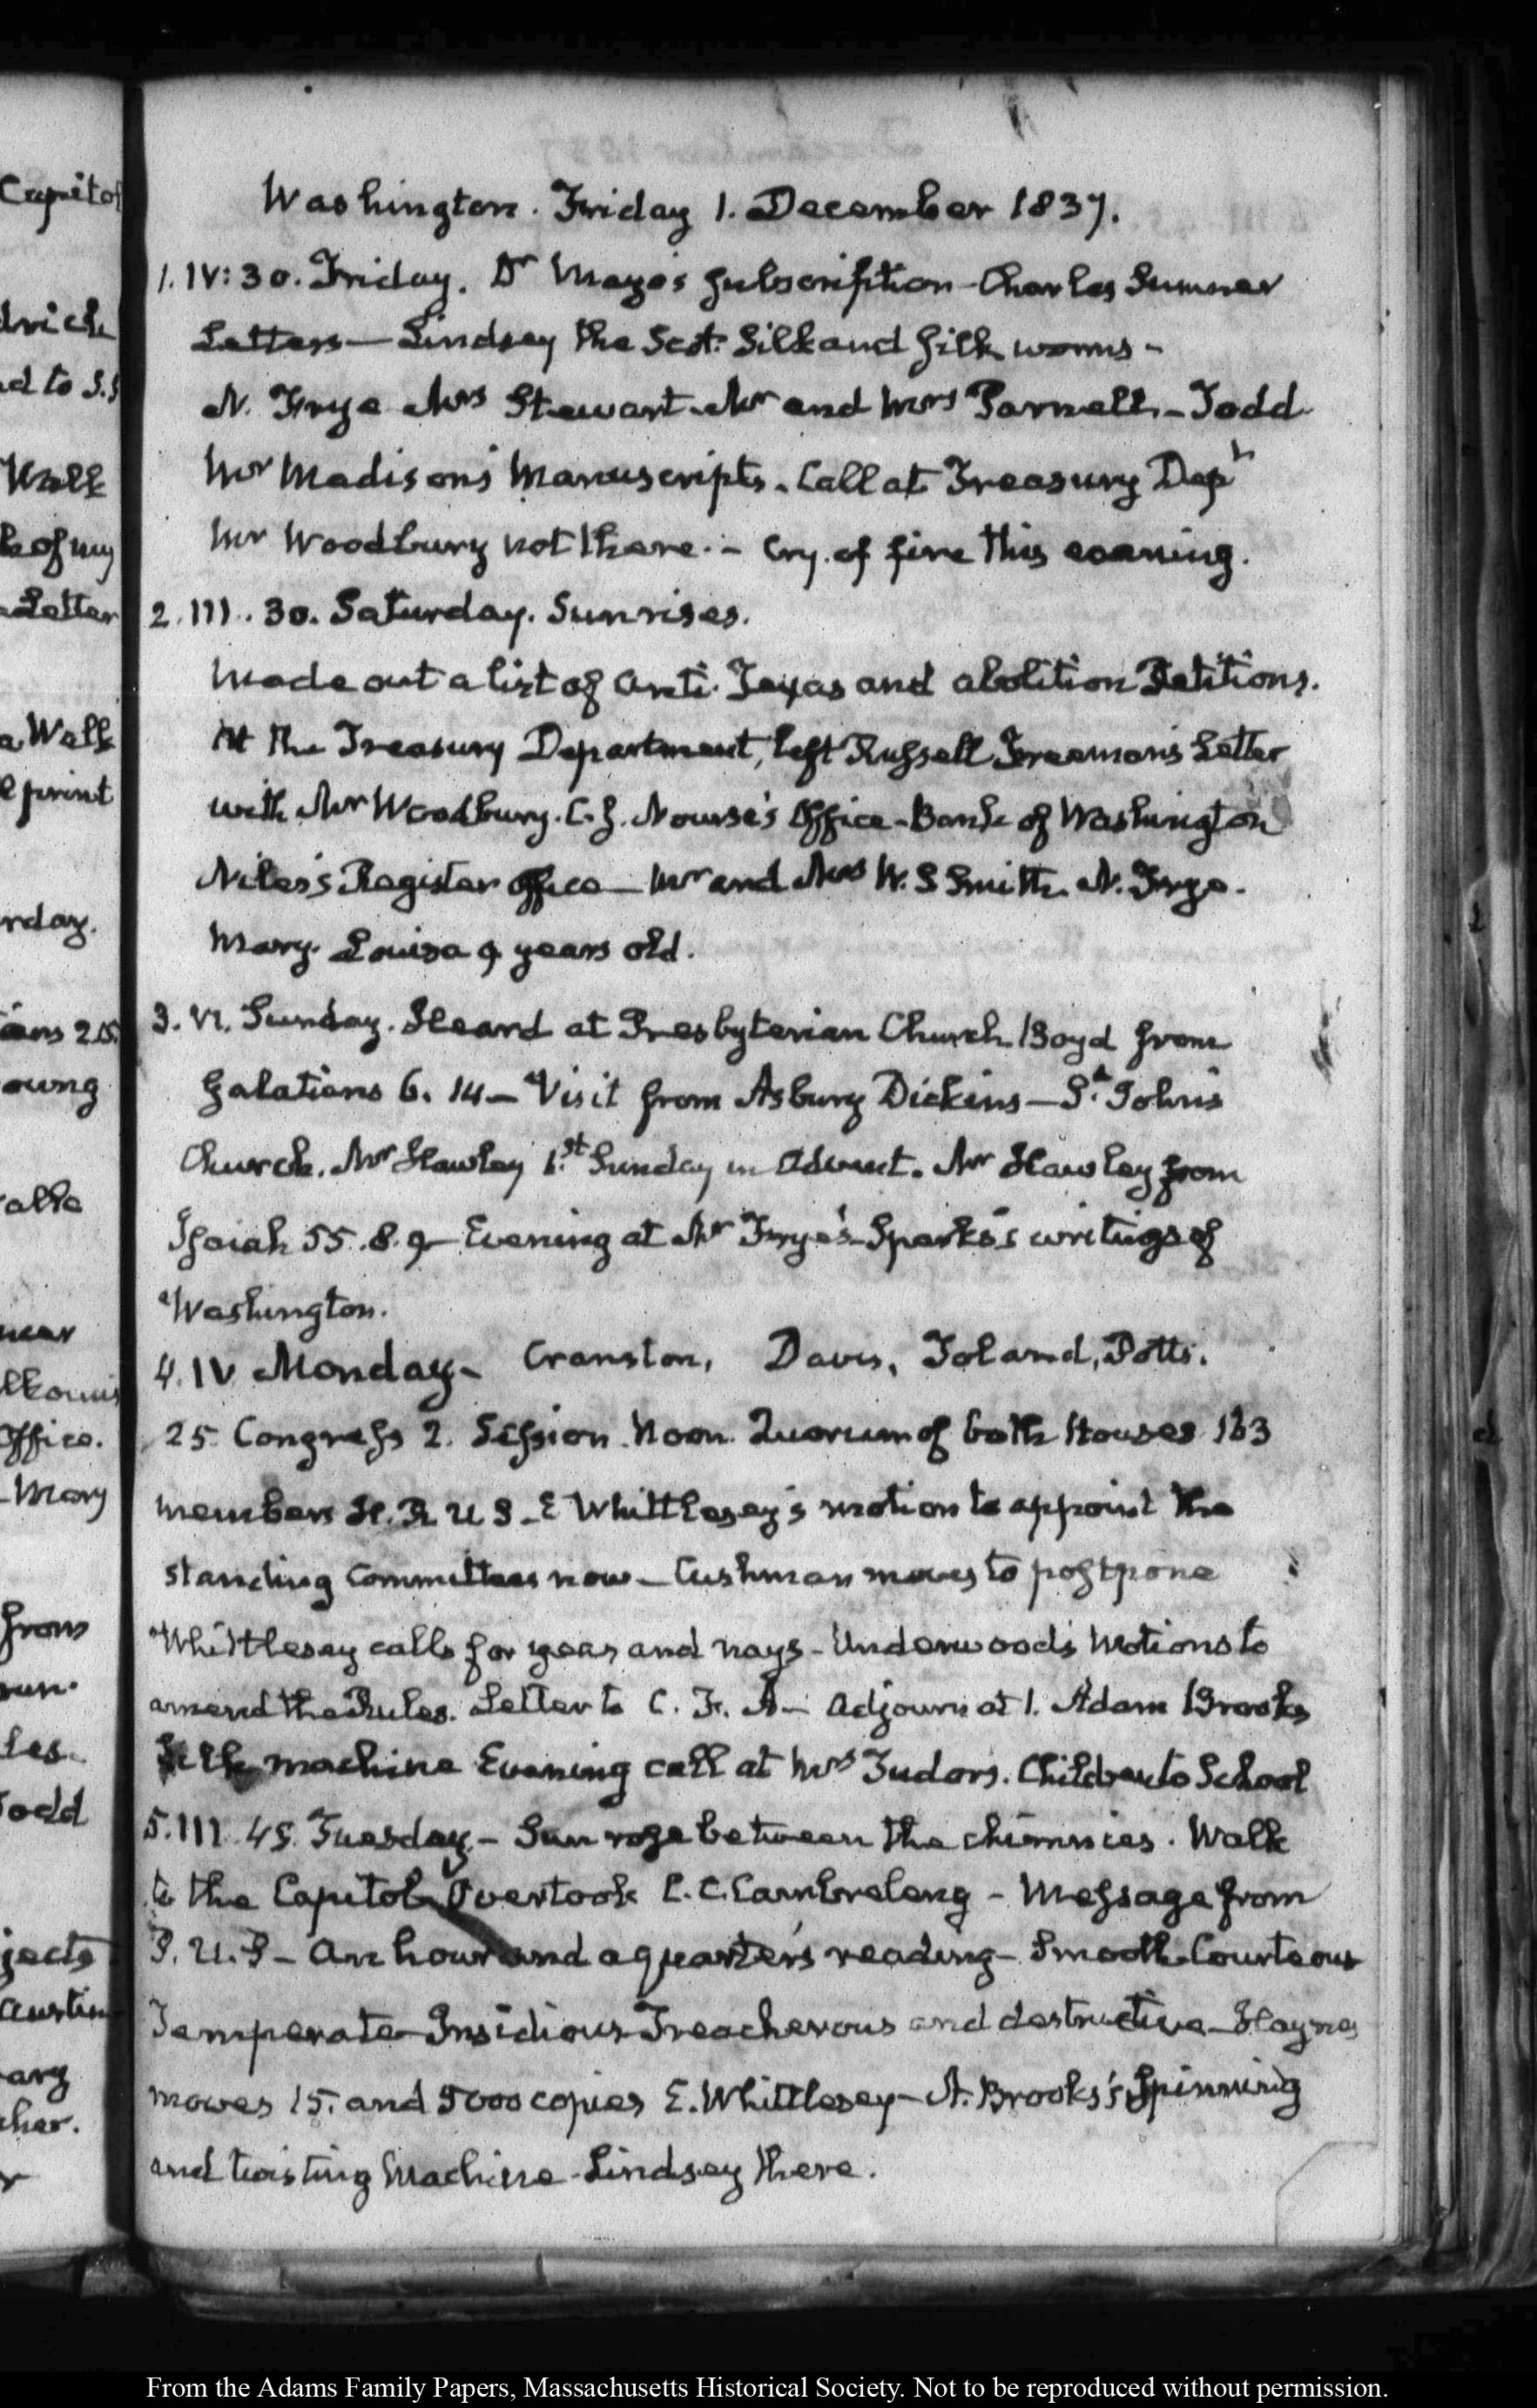 Washington. Friday 1. December 1837.
1. IV:30. Friday. Dr Mayo's subscription - Charles Sumner
Letters — Lindsey the Scot: Silk and silk worms -
N. Frye Mrs Stewart. Mr and Mrs Parnell. - Todd
Mr Madison's Manuscripts. Call at Treasury Dept
Mr Woodbury not there. - Cry of fire this evening.
2. III. 30. Saturday. Sun rises.
Made out a list of Anti-Texas and abolition Petitions.
At the Treasury Department, left Russell Freeman's Letter
with Mr Woodbury. C. J. Nourse's Office - Bank of Washington
Niles's Register office — Mr and Mrs W. S Smith. N. Frye.
Mary Louisa 9 years old.
3. VI. Sunday. Heard at Presbyterian Church Boyd from
Galatians 6. 14 — Visit from Asbury Dickins — St. John's
Church. Mr Hawley 1.st Sunday in Advent. Mr Hawley from
Isaiah 55. 8. 9 — Evening at Mr Frye's - Sparks's writings of
Washington.
4. IV Monday - Cranston, Davis, Toland, Potts.
25. Congress 2. Session. Noon. Quorum of both Houses 163
members H. R. U S - E Whittlesey's motion to appoint the
standing Committees now — Cushman moves to postpone
Whittlesey calls for yeas and nays - Underwood's Motions to
amend the Rules. Letter to C. F. A — Adjourn at 1. Adam Brooks
Silk machine Evening call at Mrs Tudors. Children to School
5. III. 45. Tuesday. - Sun rose between the chimnies. Walk
to the Capitol. Overtook C. C. Cambreleng - Message from
P. U. S - An hour and a quarter's reading - Smooth Courteous
Temperate Insidious Treacherous and destructive - Haynes
moves 15. and 5000 copies E. Whittlesey - A. Brooks's Spinning
and twisting Machine - Lindsey there.
Capitol
drich
ad to J.S
Walk
k of my
Letter
a Walk
print
rday.
ians 2.15.
oung
alks
near
Office.
- Mary
from
run.
les.
Todd
jects
Austin
ary
ther.
From the Adams Family Papers, Massachusetts Historical Society. Not to be reproduced without permission.